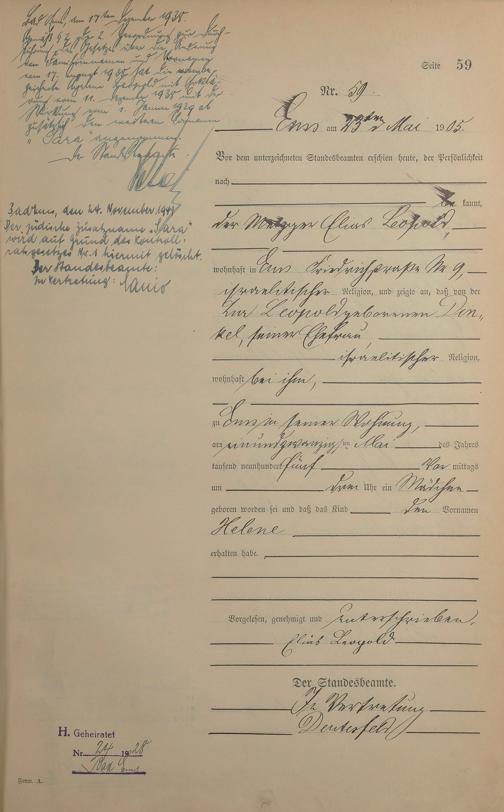 Bad Ems, den 17ten Dezember 1938.
Gemäß § 2 Verordnung zur Durch-
führung des Gesetzes über die Änderung
von Familiennamen und Vornamen
vom 17. August 1938 hat die
Helene Leopold mit
vom 11. Dezember 1938 mit
Wirkung vom 1. Januar 1939 ab
zusätzlich den weiteren Vornamen
"Sara" angenommen.
Der Standesbeamte.
Bad Ems, den 24. November 194
Der jüdische Zusatzname "Sara"
wird auf Grund des Kontroll-
ratgesetzes Nr. 1 hiermit gelöscht.
Der Standesbeamte:
In Vertretung:
Seite 59
Nr. 59.
Ems am 23ten Mai 1905.
Vor dem unterzeichneten Standesbeamten erschien heute, der Persönlichkeit
nach
be kannt,
der Metzger Elias Leopold,
wohnhaft in Ems Friedrichstraße Nr 9,
israelitischer Religion, und zeigte an, daß von der
Leopold geborenen Din-
kel, seiner Ehefrau,
israelitischer Religion,
wohnhaft bei ihm,
zu Ems in seiner Wohnung,
am einundzwanzig ten Mai des Jahres
tausend neunhundert fünf Vor mittags
um drei Uhr ein Mädchen
geboren worden sei und daß das Kind den Vornamen
Helene
erhalten habe.
Vorgelesen, genehmigt und unterschrieben.
Elias Leopold
Der Standesbeamte.
In Vertretung
H. Geheiratet
Nr. 24 1928
Bad Ems
Form. A.